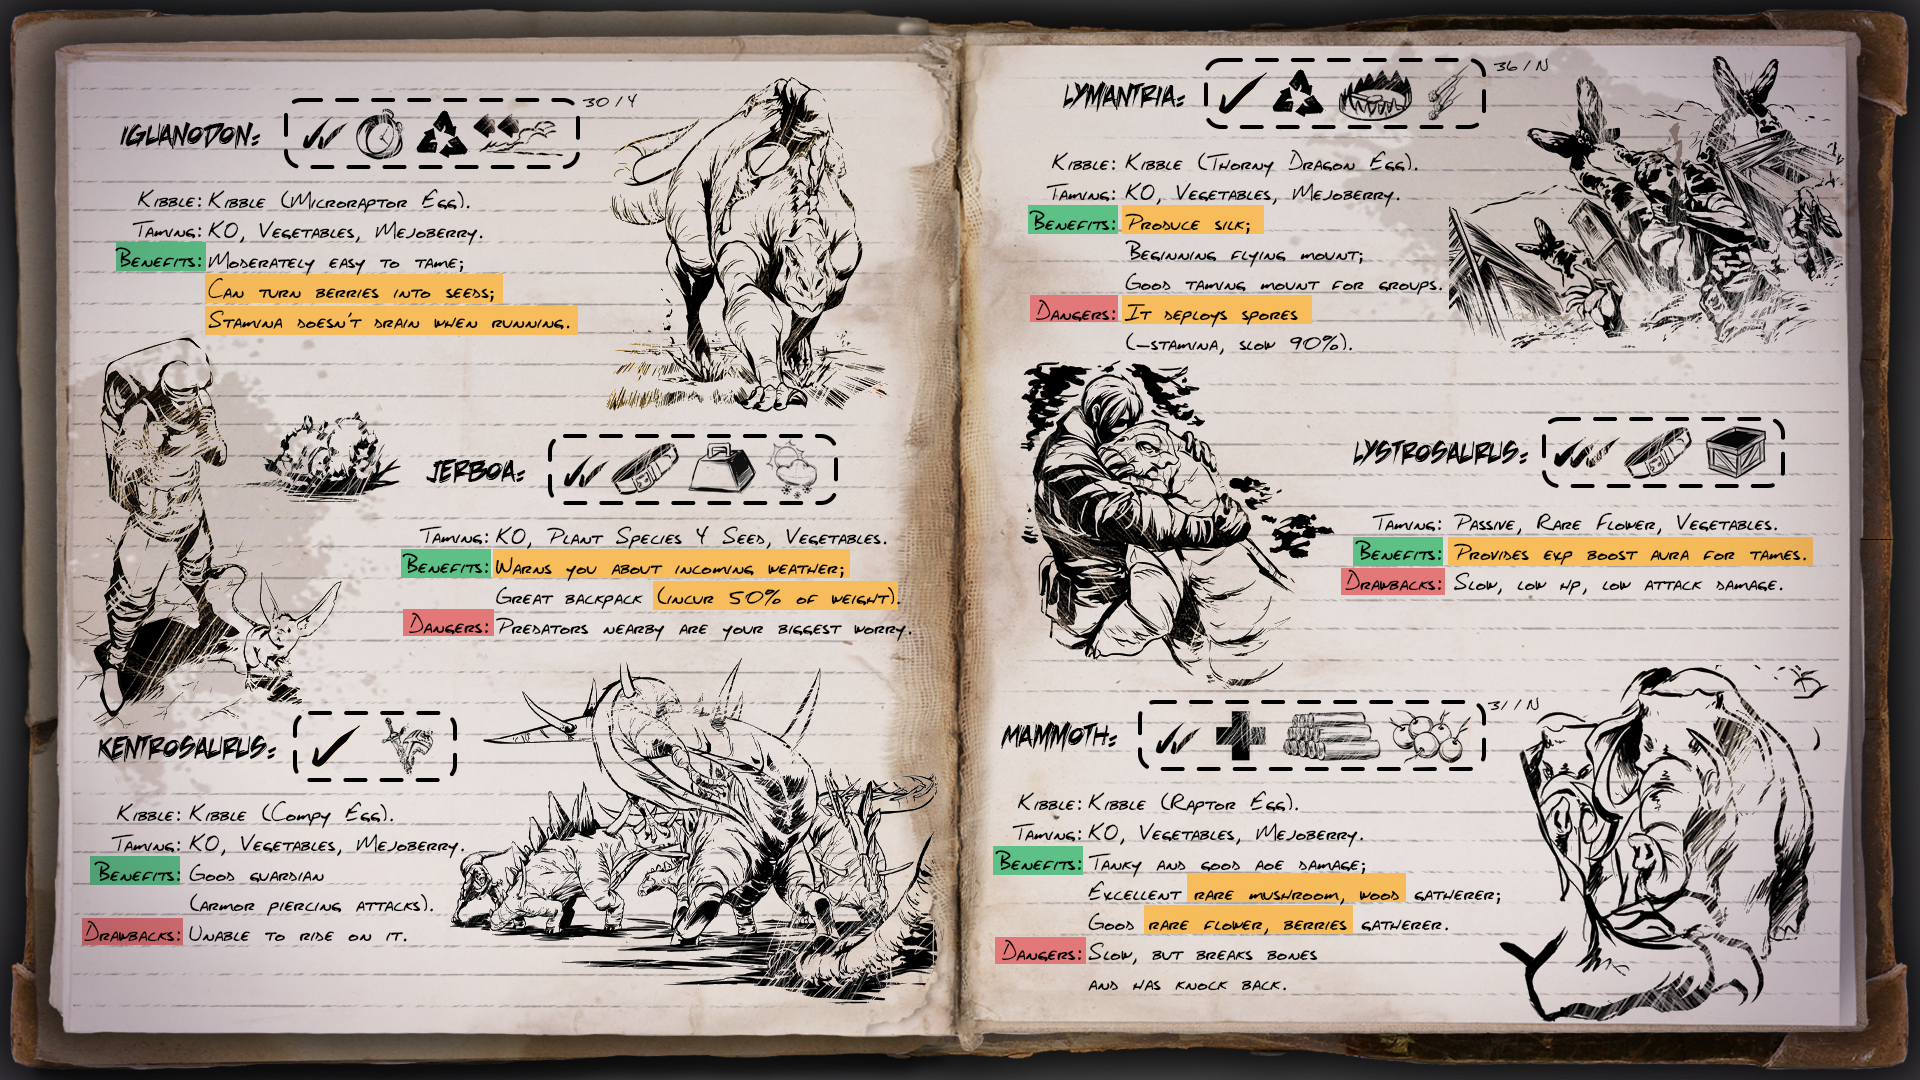 IGUANODON:
30 / Y
Kibble: Kibble (Microraptor Egg).
Taming: KO, Vegetables, Mejoberry.
Benefits: Moderately easy to tame;
Can turn berries into seeds;
Stamina doesn't drain when running.
JERBOA:
Taming: KO, Plant Species Y Seed, Vegetables.
Benefits: Warns you about incoming weather;
Great backpack (incur 50% of weight).
Dangers: Predators nearby are your biggest worry.
KENTROSAURUS:
Kibble: Kibble (Compy Egg).
Taming: KO, Vegetables, Mejoberry.
Benefits: Good guardian
(armor piercing attacks).
Drawbacks: Unable to ride on it.
LYMANTRIA:
36 / N
Kibble: Kibble (Thorny Dragon Egg).
Taming: KO, Vegetables, Mejoberry.
Benefits: Produce silk;
Beginning flying mount;
Good taming mount for groups.
Dangers: It deploys spores
(-stamina, slow 90%).
LYSTROSAURUS:
Taming: Passive, Rare Flower, Vegetables.
Benefits: Provides exp boost aura for tames.
Drawbacks: Slow, low hp, low attack damage.
MAMMOTH:
31 / N
Kibble: Kibble (Raptor Egg).
Taming: KO, Vegetables, Mejoberry.
Benefits: Tanky and good aoe damage;
Excellent rare mushroom, wood gatherer;
Good rare flower, berries gatherer.
Dangers: Slow, but breaks bones
and has knock back.